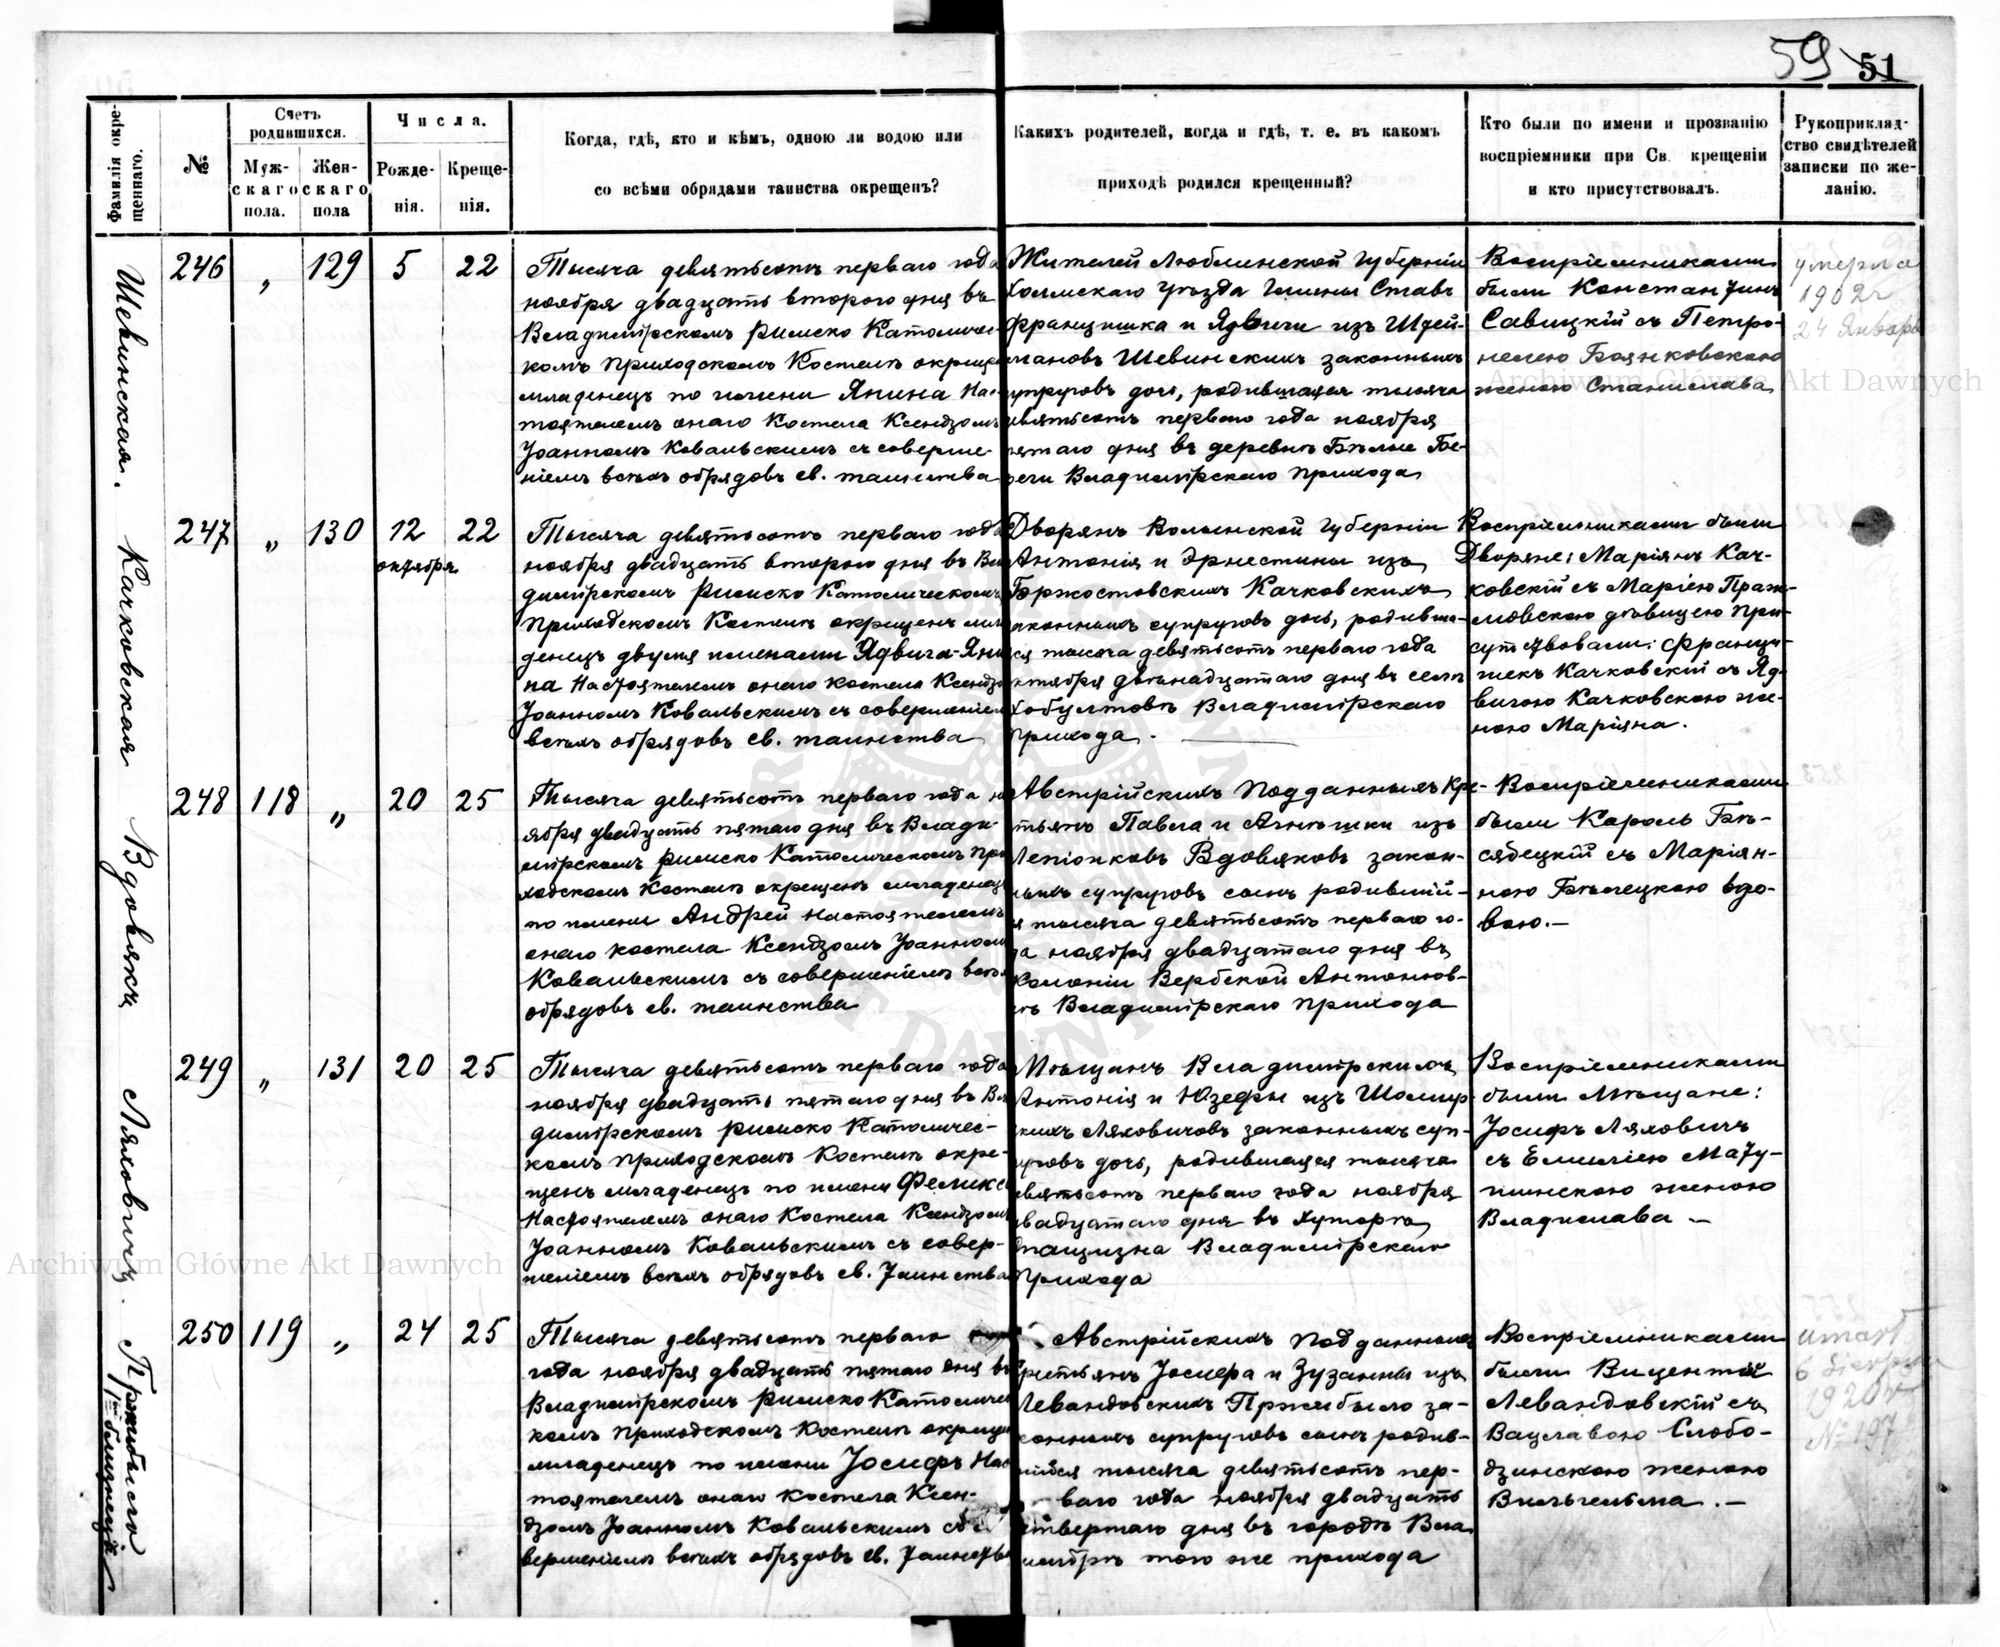 59 51
Фамилія окре-
щеннаго.
№
Счетъ
родившихся.
Муж-
скаго
пола.
Жен-
скаго
пола
Числа.
Рожде-
нія.
Креще-
нія.
Когда, гдѣ, кто и кѣмъ, одною ли водою или
со всѣми обрядами таинства окрещенъ?
Какихъ родителей, когда и гдѣ, т. е. въ какомъ
приходѣ родился крещенный?
Кто были по имени и прозванію
воспріемники при Св. крещеніи
и кто присутствовалъ.
Рукоприклад-
ство свидѣтелей
записки по же-
ланію.
Шевинская.
246 „ 129 5 22
Тысяча девятьсотъ перваго года
ноября двадцать второго дня въ
Владимірскомъ Римско Католичес-
комъ Приходскомъ Костелѣ окрещенъ
младенецъ по имени Янина Нас-
тоятелемъ онаго Костела Ксендзомъ
Іоанномъ Ковальскимъ съ соверше-
ніемъ всѣхъ обрядовъ св. таинства
Жителей Люблинской Губерніи
Холмскаго Уѣзда Гмины Ставъ
Францишка и Ядвиги изъ Шдей-
мановъ Шевинскихъ законныхъ
супруговъ дочь, родившаяся тысяча
девятьсотъ перваго года ноября
пятаго дня въ деревнѣ Бѣлые Бе-
реги Владимірскаго прихода
Воспріемниками
были Константинъ
Савицкій съ Петро-
нелею Боянковскою
женою Станислава
умерла
1902 г
24 Января
Качковская
247 „ 130 12 22
октября
Тысяча девятьсотъ перваго года
ноября двадцать второго дня въ Вла
димірскомъ Римско Католическомъ
Приходскомъ Костелѣ окрещенъ мла
денецъ двумя именами Ядвига-Яни
на Настоятелемъ онаго костела Ксендзо
Іоанномъ Ковальскимъ съ совершеніем
всѣхъ обрядовъ св. таинства
Дворянъ Волынской Губерніи
Антонія и Эрнестины изъ
Бржостовскихъ Качковскихъ
законныхъ супруговъ дочь, родивша-
яся тысяча девятьсотъ перваго года
октября двѣнадцатаго дня въ селѣ
Хобултовѣ Владимірскаго
прихода.
Воспріемниками были
Дворяне: Маріянъ Кач-
ковскій съ Маріею Праж-
мовскою дѣвицею При-
сутствовали: Францы-
шекъ Качковскій съ Яд-
вигою Качковскою же-
ною Маріяна.
Вдовякъ
248 118 „ 20 25
Тысяча девятьсотъ перваго года но
ября двадцать пятаго дня въ Влади
мірскомъ Римско Католическомъ При
ходскомъ Костелѣ окрещенъ младенецъ
по имени Андрей Настоятелемъ
онаго костела Ксендзомъ Іоанномъ
Ковальскимъ съ совершеніемъ всѣхъ
обрядовъ св. таинства
Австрійскихъ Подданныхъ Кре-
стьянъ Павла и Агнѣшки изъ
Лепіонковъ Вдовяковъ закон-
ныхъ супруговъ сынъ родившій-
ся тысяча девятьсотъ перваго го-
да ноября двадцатаго дня въ
Колоніи Вербской Антонов-
кѣ Владимірскаго прихода
Воспріемниками
были Кароль Бѣ-
сядецкій съ Маріян-
ною Бѣлецкою вдо-
вою.—
Ляховичъ.
249 „ 131 20 25
Тысяча девятьсотъ перваго года
ноября двадцать пятаго дня въ Вла
димірскомъ Римско Католичес-
комъ Приходскомъ Костелѣ окре-
щенъ младенецъ по имени Феликса
Настоятелемъ онаго Костела Ксендзомъ
Іоанномъ Ковальскимъ съ совер-
шеніемъ всѣхъ обрядовъ св. Таинства
Мѣщанъ Владимірскихъ
Антонія и Юзефы изъ
Ляховичовъ законныхъ суп-
руговъ дочь, родившаяся тысяча
девятьсотъ перваго года ноября
двадцатаго дня въ хуторѣ
Владимірскаго
Прихода
Воспріемниками
были Мѣщане:
Іосифъ Ляховичъ
съ Емиліею Мату-
шинскою женою
Владислава —
Пржибысло
250 119 „ 24 25
Тысяча девятьсотъ перваго
года ноября двадцать пятаго дня въ
Владимірскомъ Римско Католичес
комъ Приходскомъ Костелѣ окрещен
младенецъ по имени Іосифъ Нас
тоятелемъ онаго костела Ксен-
дзомъ Іоанномъ Ковальскимъ со
вершеніемъ всѣхъ обрядовъ св. Таинства
Австрійскихъ Подданныхъ
Крестьянъ Іосифа и Зузанны изъ
Левандовскихъ Пржибысло за-
конныхъ супруговъ сынъ родив-
шійся тысяча девятьсотъ пер-
ваго года ноября двадцать
четвертаго дня въ городѣ Вла
димірѣ того же прихода
Воспріемниками
были Вицентій
Левандовскій съ
Вацлавою Слобо-
дзинскою женою
Вильгельма.—
umarł
6 sierpnia
1920 r
№ 197
Archiwum Główne Akt Dawnych
Archiwum Główne Akt Dawnych